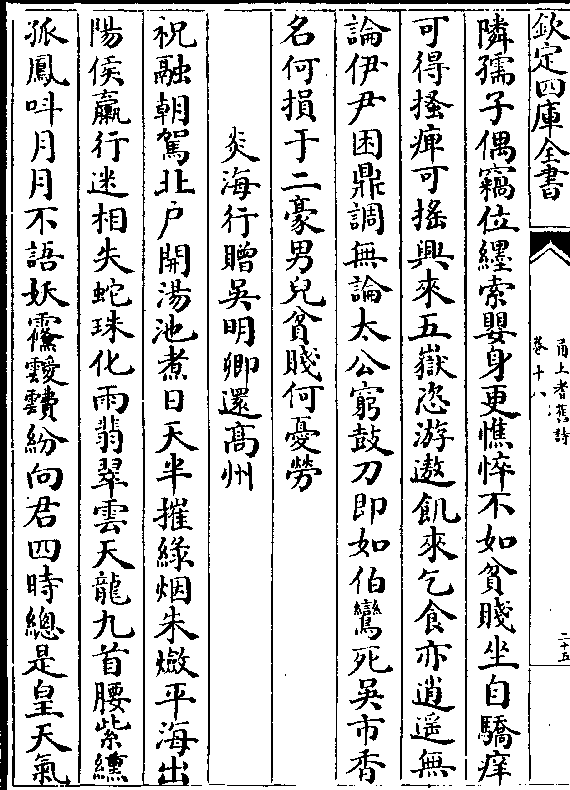 欽定四庫全書
甬上耆舊詩
卷十八
二十五
隣孺子偶竊位纆索嬰身更憔悴不如貧賤坐自驕痒
可得搔痺可搖興來五嶽恣游遨飢來乞食亦逍遥無
論伊尹困鼎調無論太公窮鼓刀即如伯鸞死吳市香
名何損于二豪男兒貧賤何憂勞
炎海行贈吳明卿還髙州
祝融朝駕北户開湯池煮日天半摧緑烟朱燄平海出
陽侯羸行迷相失蛇珠化雨翡翠雲天龍九首腰紫纁
孤鳳呌月月不語妖䨴靉靅紛向君四時總是皇天氣